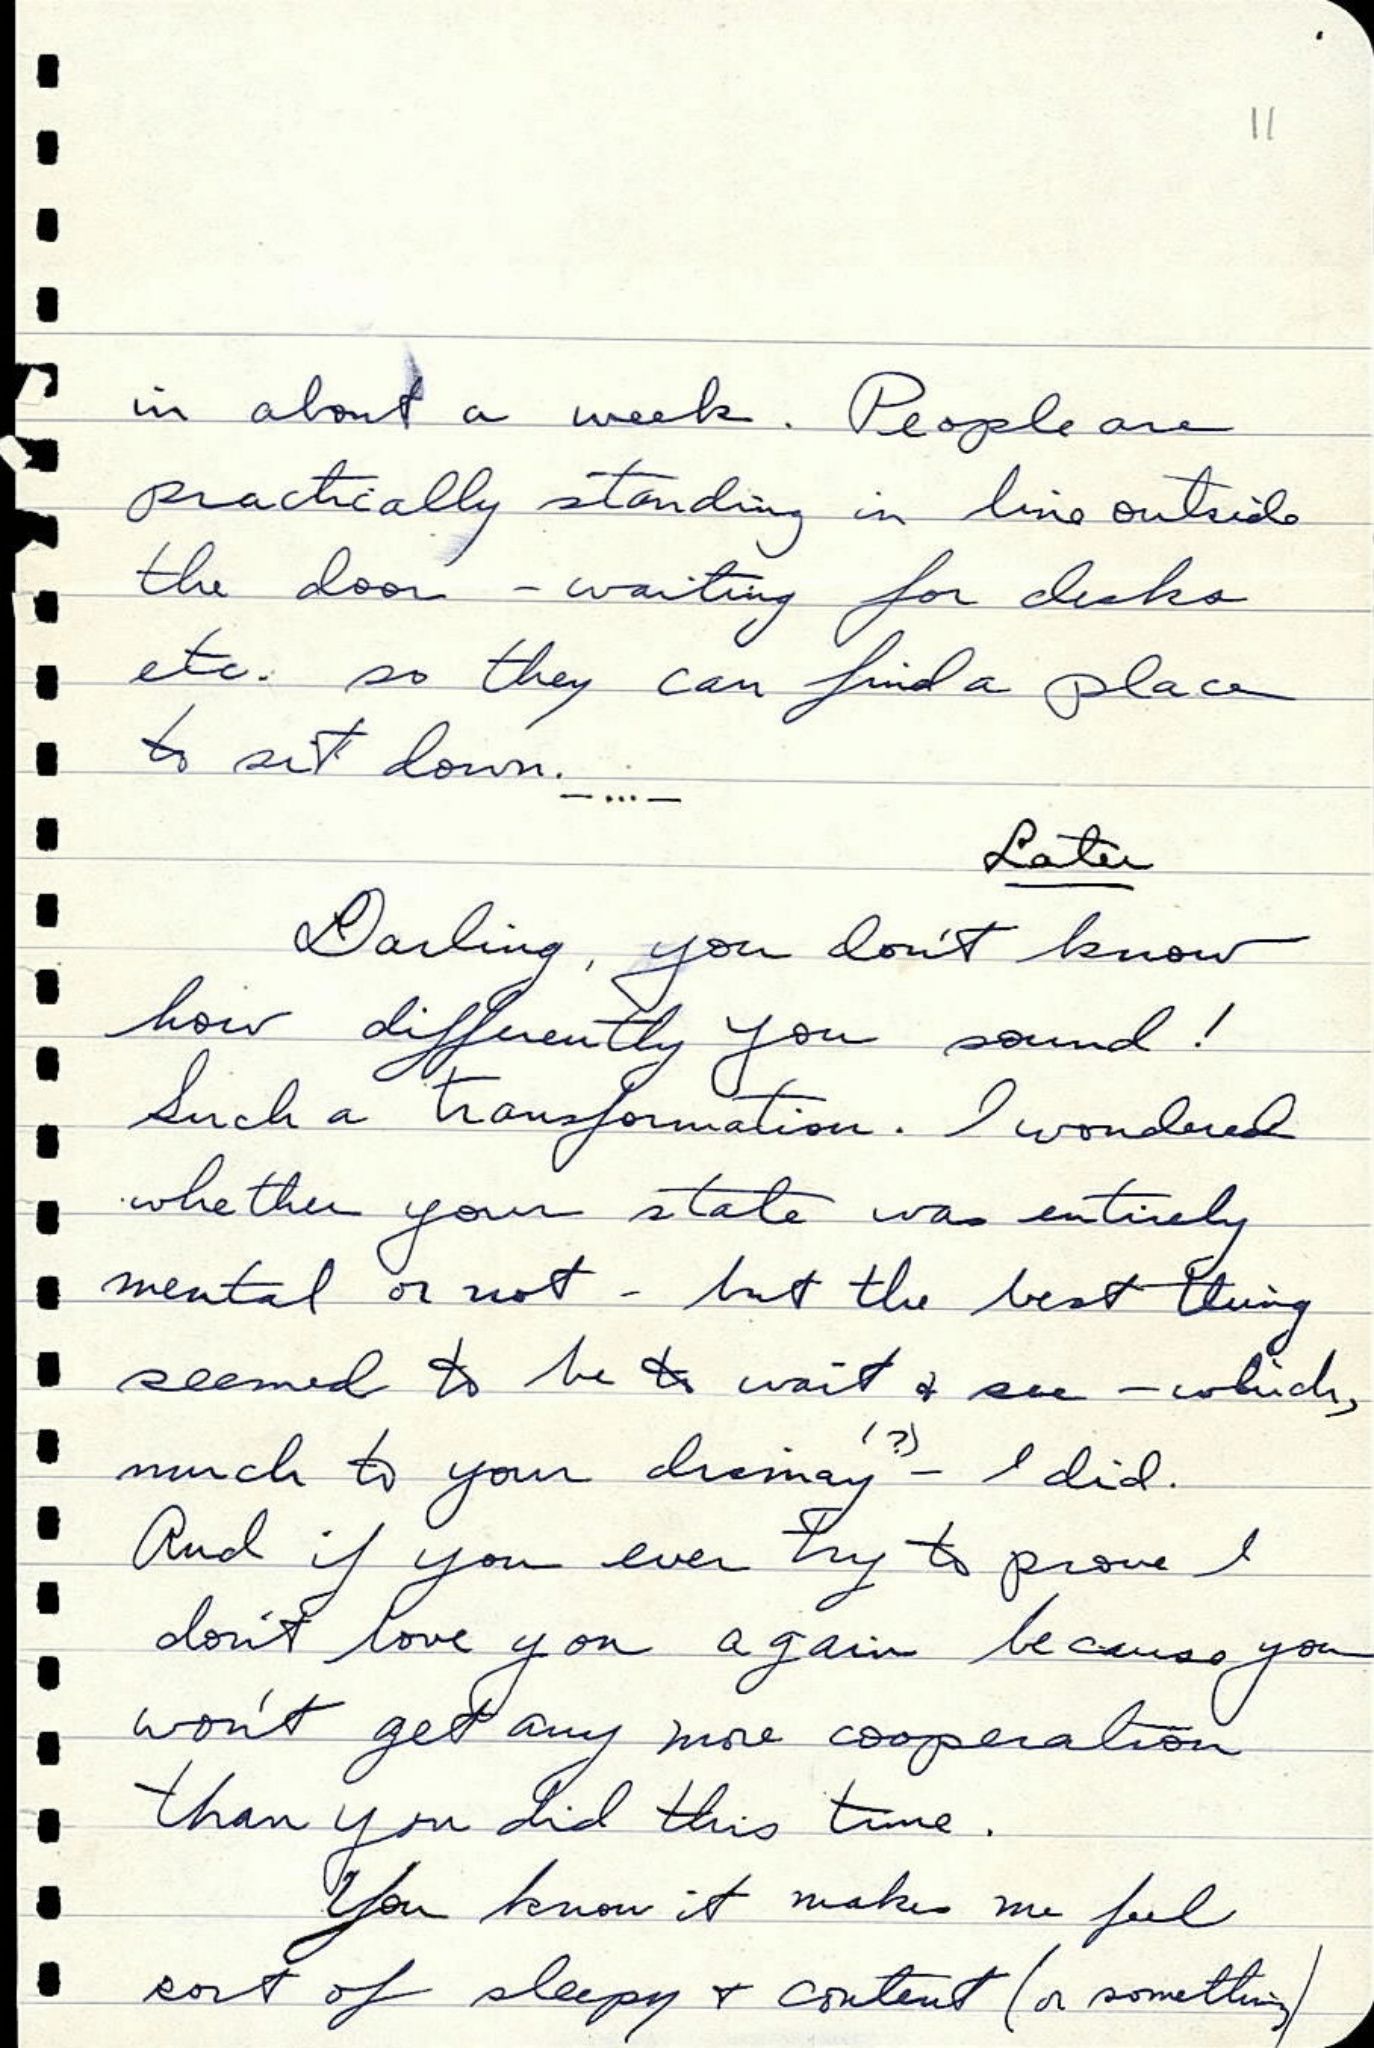 11
in about a week. People are
practically standing in line outside
the door - waiting for desks
etc. so they can find a place
to sit down.
— ... —
Later
Darling, you don't know
how differently you sound!
Such a transformation. I wondered
whether your state was entirely
mental or not - but the best thing
seemed to be to wait & see - which,
much to your dismay (?) - I did.
And if you ever try to prove I
don't love you again because you
won't get any more cooperation
than you did this time.
You know it makes me feel
sort of sleepy & content (or something)